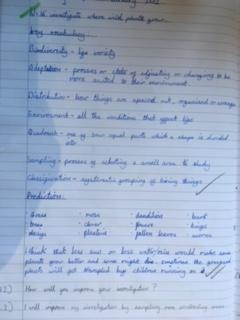 investigate where wild plants grow.
Key vocabulary
Biodiversity - life variety
Adaptation - process or state of adjusting or changing to be
more suited to their environment.
Distribution - how things are spaced out, organised or
Environment - all the conditions that affect life
Quadrant - one of four equal parts which a shape is divided
into
Sampling - process of selecting a small area to study
Classification - systematic grouping of living things
Predictions:
• Grass • moss • dandelions
• trees • clover • flowers • twigs
• daisys • plantine • fallen leaves
I think that less sun or less water/rain would make some
plants grow better and some might die. sometimes the
plants will get trampled by children running on it.
How will you improve your investigation?
I will improve my investigation by sampling more